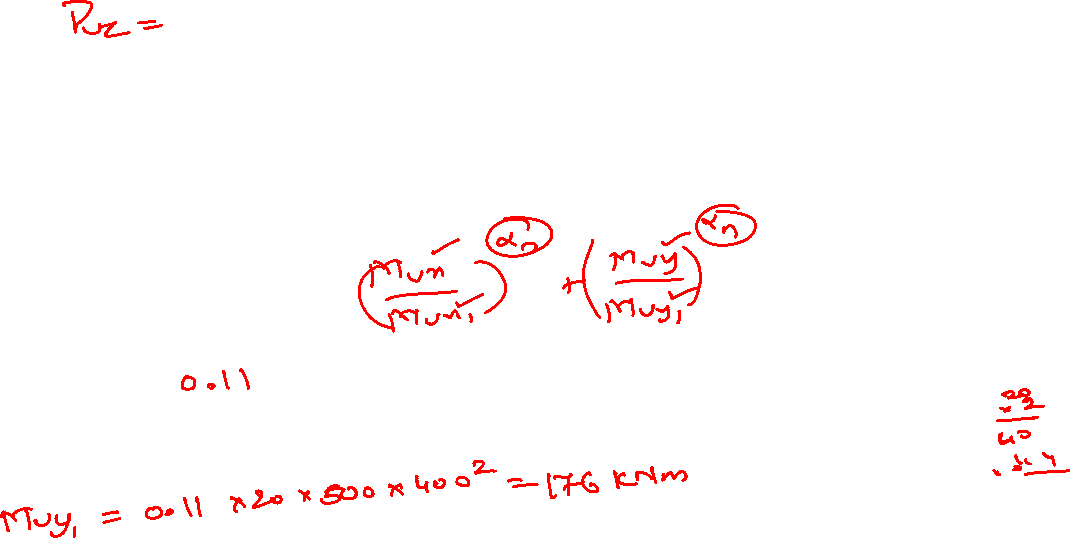 Puz =
(Mux / Mux₁)^αn + (Muy / Muy₁)^αn
0.11
20
× 2
40
Muy₁ = 0.11 × 20 × 500 × 400² = 176 kNm